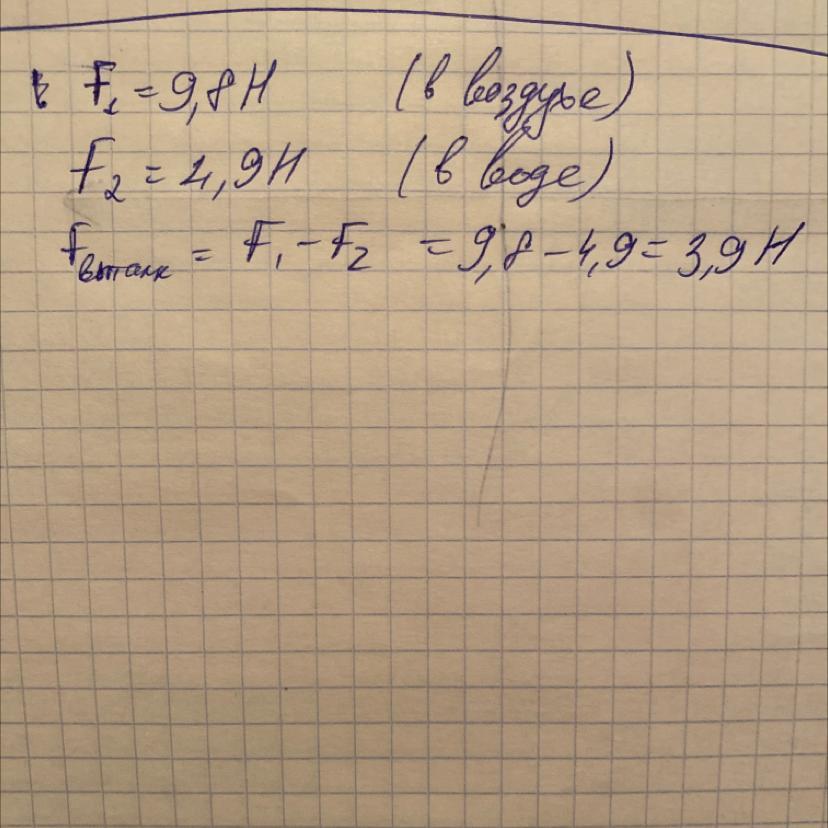 F₁ = 9,8 Н (в воздухе)
F₂ = 4,9 Н (в воде)
Fвыталк = F₁ - F₂ = 9,8 - 4,9 = 3,9 Н